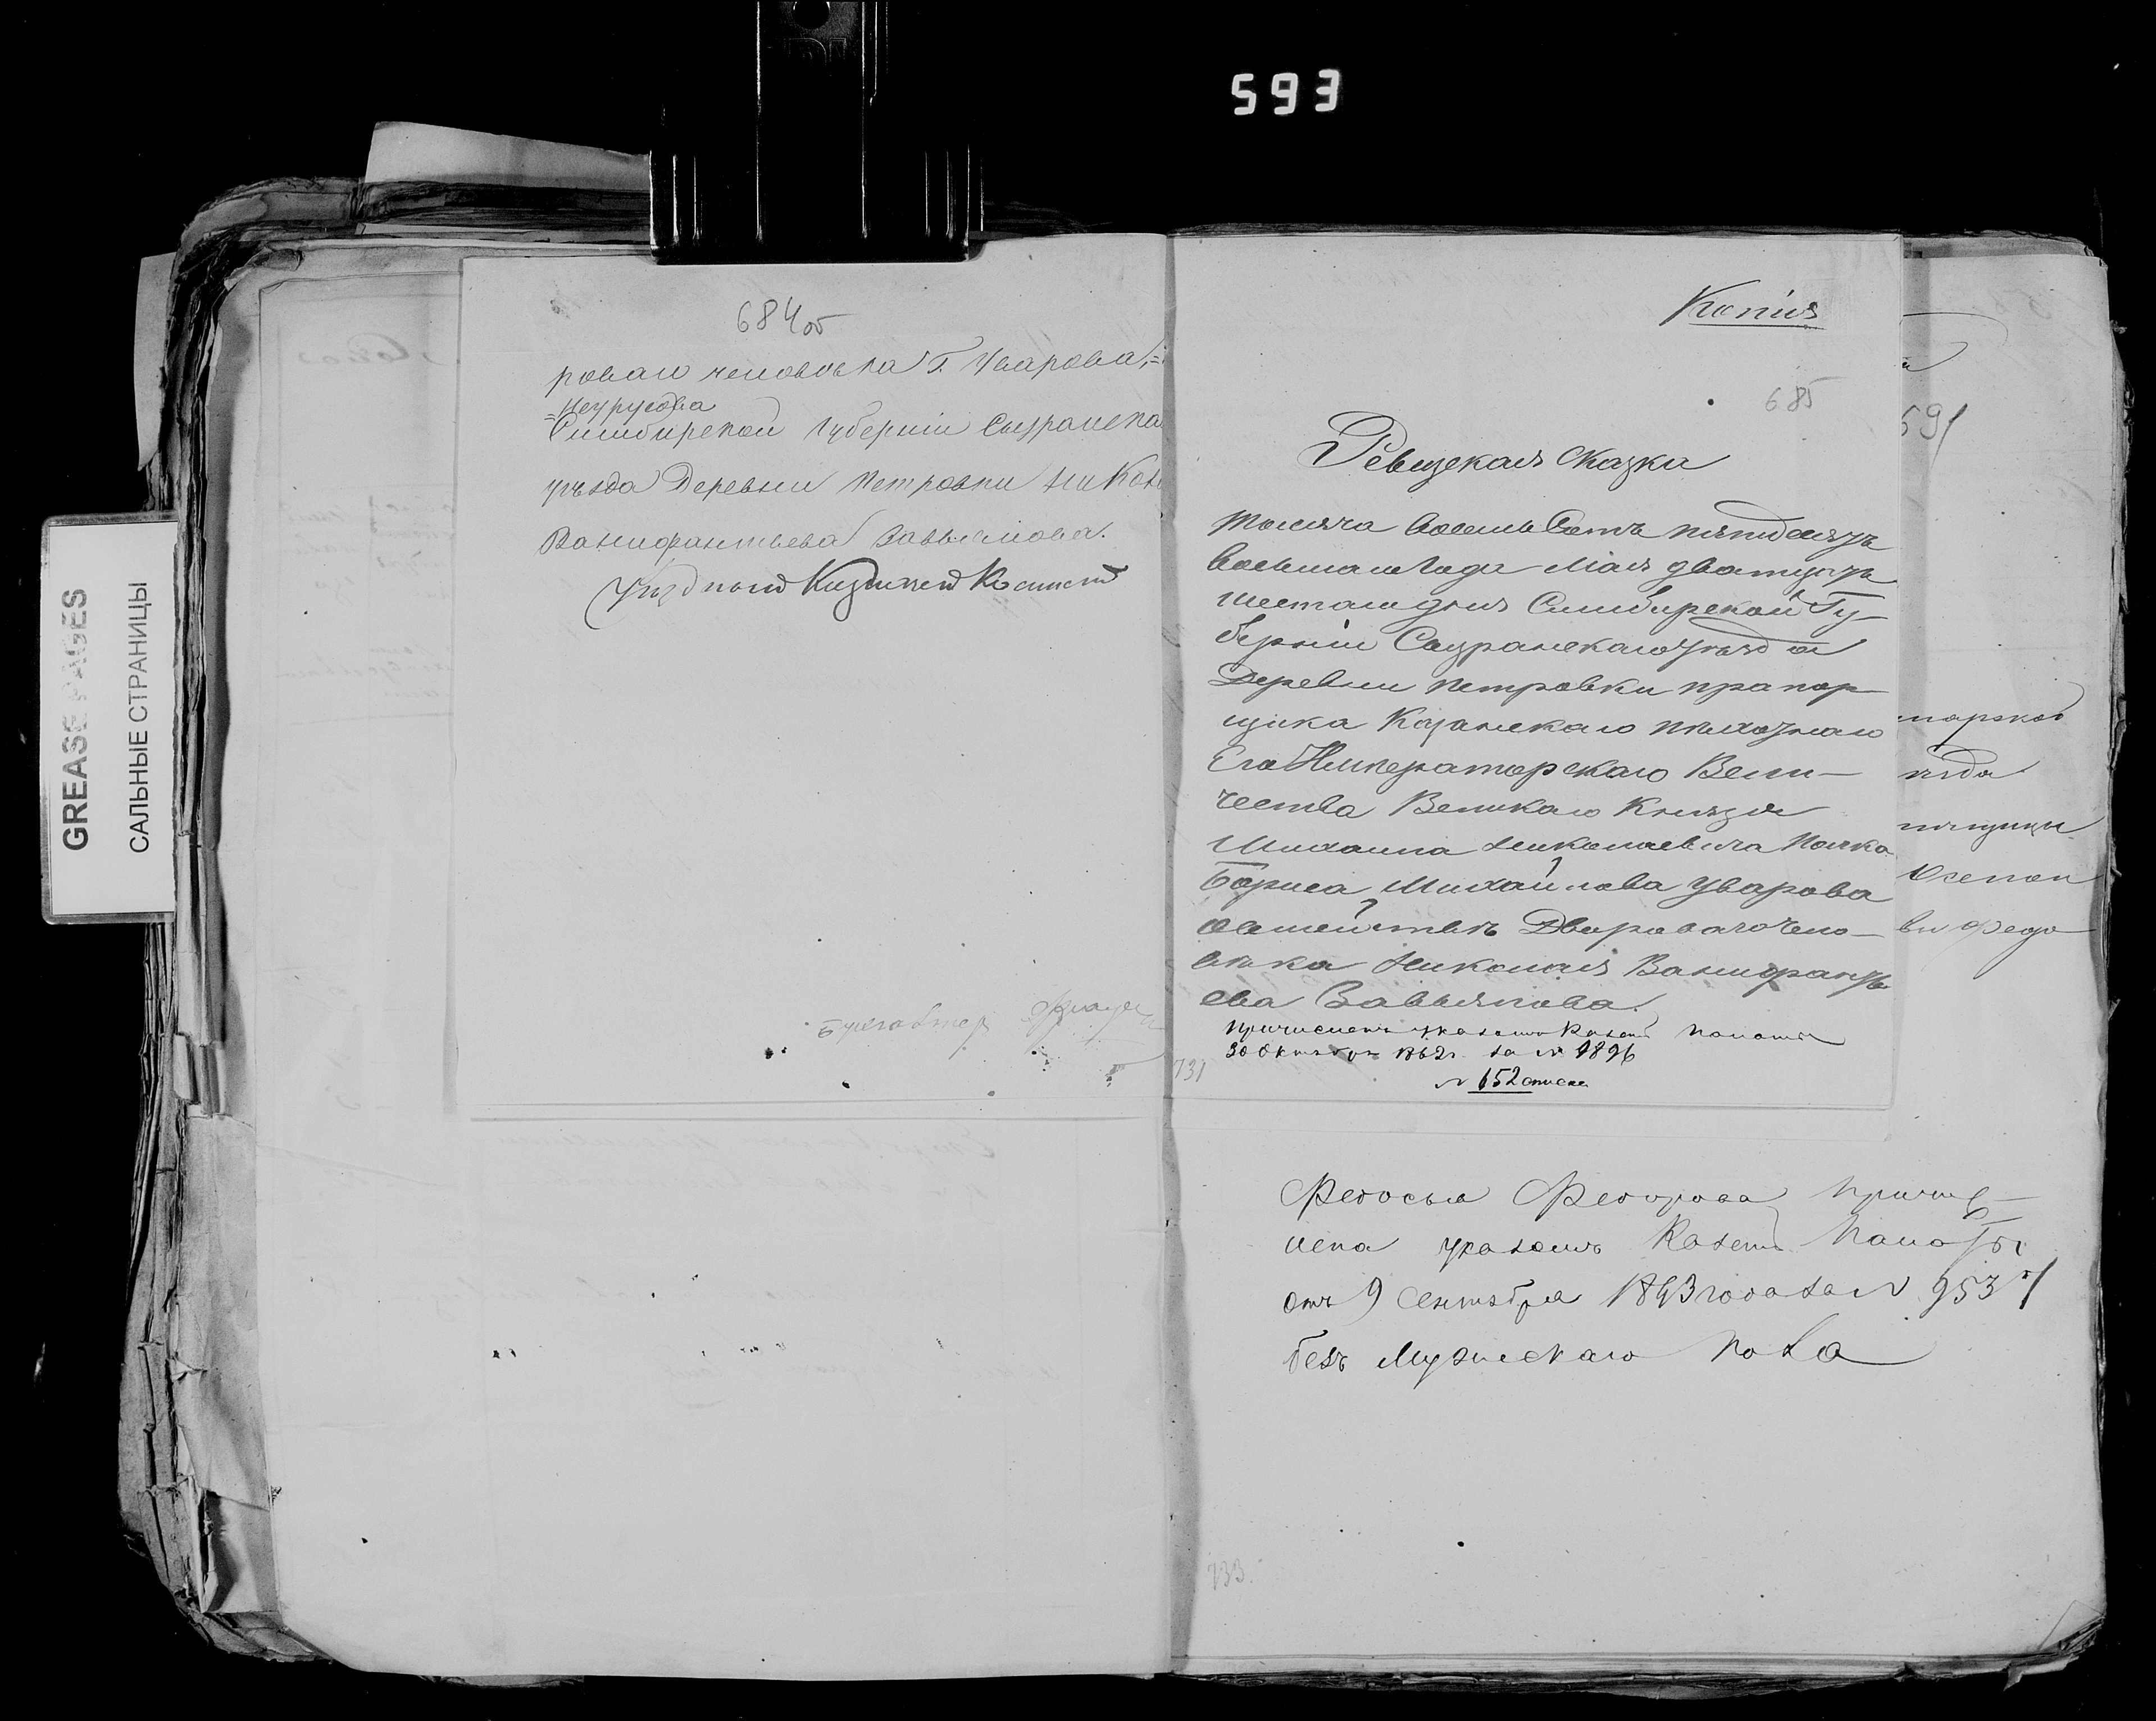 593
GREASE PAGES
САЛЬНЫЕ СТРАНИЦЫ
684об
роваго человѣка Г. Уварова,=
=Неурусова
Симбирской Губерніи Сызранска
уѣзда Деревни Петровки Нико
Ванифантьева Завьялова.
Уѣздный Казначей
Бухгалтер
Копія
685
Ревизская сказка
тысяча восемь Сотъ пятдесятъ
восьмаго Года Мая дватцать
шестаго дня Симбирской Гу-
берніи Сызранскаго уѣзда
Деревни Петровки прапор-
щика Казанскаго пѣхотнаго
Его Императорскаго Вели-
чества Великаго Князя
Михаила Николаевича Полка
Бориса Михайлова Уварова
Дворовагочело-
вѣка Николая Ванифантье
ева Завьялова.
Причисленъ указомъ Казен Палаты
30 Октября 1862г. за № 1896
№ 652 описи
731
591
нарской
ѣзда
Осепои
ви Федо
Федосья Федорова причис-
лена указомъ Казен Палаты
отъ 9 Сентября 1863 года за № 9537
безъ Мужескаго пола
733.